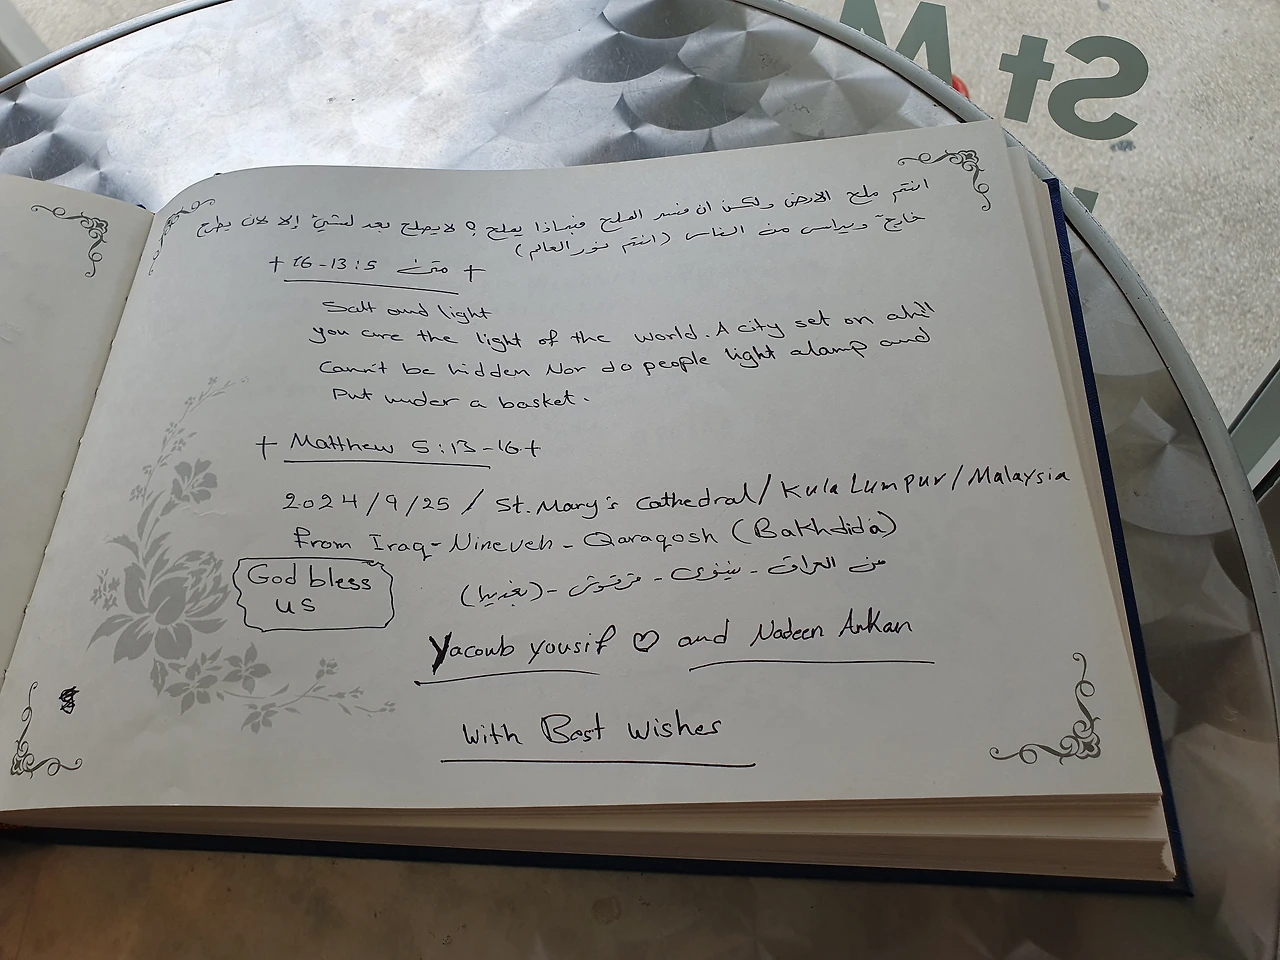 St M
انتم ملح الارض ولكن ان فسد الملح فبماذا يملح ؟ لا يصلح بعد لشيء إلا لان يطرح
خارجاً ويداس من الناس (انتم نور العالم)
+ متى 5 : 13 - 16 +
Salt and light
you are the light of the world. A city set on a hill
Cann't be hidden Nor do people light a lamp and
Put under a basket.
+ Matthew 5:13-16 +
2024/9/25 / St. Mary's Cathedral/ Kula Lumpur/ Malaysia
From Iraq - Nineveh - Qaraqosh (Bakhdida)
من العراق - نينوى - قرقوش - (بغديدا)
God bless
us
Yacoub yousif ♡ and Nadeen Ankan
with Best wishes